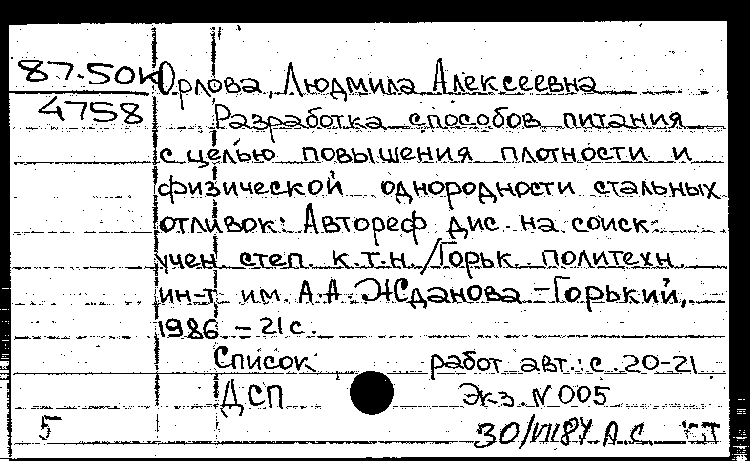 87-50к Орлова, Людмила Алексеевна
4758 Разработка способов питания
с целью повышения плотности и
физической однородности стальных
отливок: Автореф. дис. на соиск.
учен. степ. к.т.н. /Горьк. политехн.
ин-т им. А.А. Жданова - Горький,
1986 - 21 с.
Список работ авт.: с. 20-21
ДСП Экз. N 005
5 30/VII87 А.С.